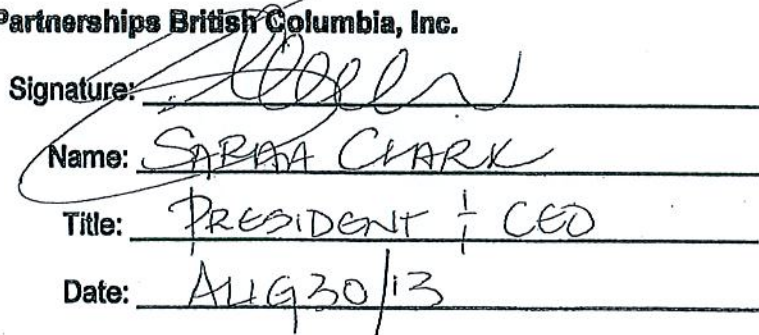 Partnerships British Columbia, Inc.
Signature:
Name: SARAH CLARK
Title: PRESIDENT & CEO
Date: AUG 30/13